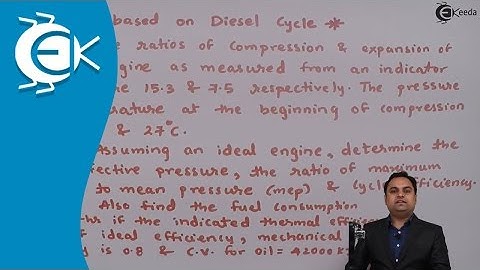 EK
Ekeeda
based on Diesel Cycle *
ratios of compression & expansion of
engine as measured from an indicator
15.3 & 7.5 respectively. The pressure
at the beginning of compression
& 27°C.
Assuming an ideal engine, determine the
pressure, the ratio of maximum
to mean pressure (mep) & cycle efficiency.
Also find the fuel consumption
if the indicated thermal
ideal efficiency, mechanical
is 0.8 & C.V. for oil = 42000